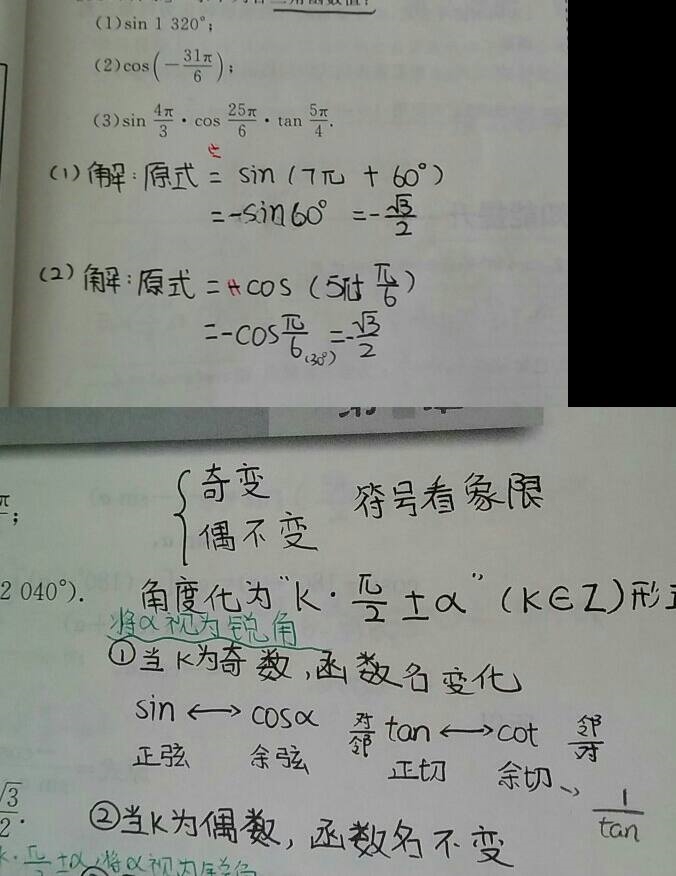 (1)sin 1 320°;
(2)cos(-31π/6);
(3)sin 4π/3·cos 25π/6·tan 5π/4.
(1)解:原式 = sin(7π + 60°)
=-sin60° =-√3/2
(2)解:原式 = cos(5π+π/6)
=-cosπ/6(30°) =-√3/2
奇变
偶不变 符号看象限
π;
2 040°).
角度化为"K·π/2±α"(K∈Z)形式
将α视为锐角
①当K为奇数,函数名变化
sin ⟷ cosα 对/邻 tan ⟷ cot 邻/对
正弦 余弦 正切 余切、、 1/tan
√3/2.
②当K为偶数,函数名不变
k·π/2±α,将α视为锐角